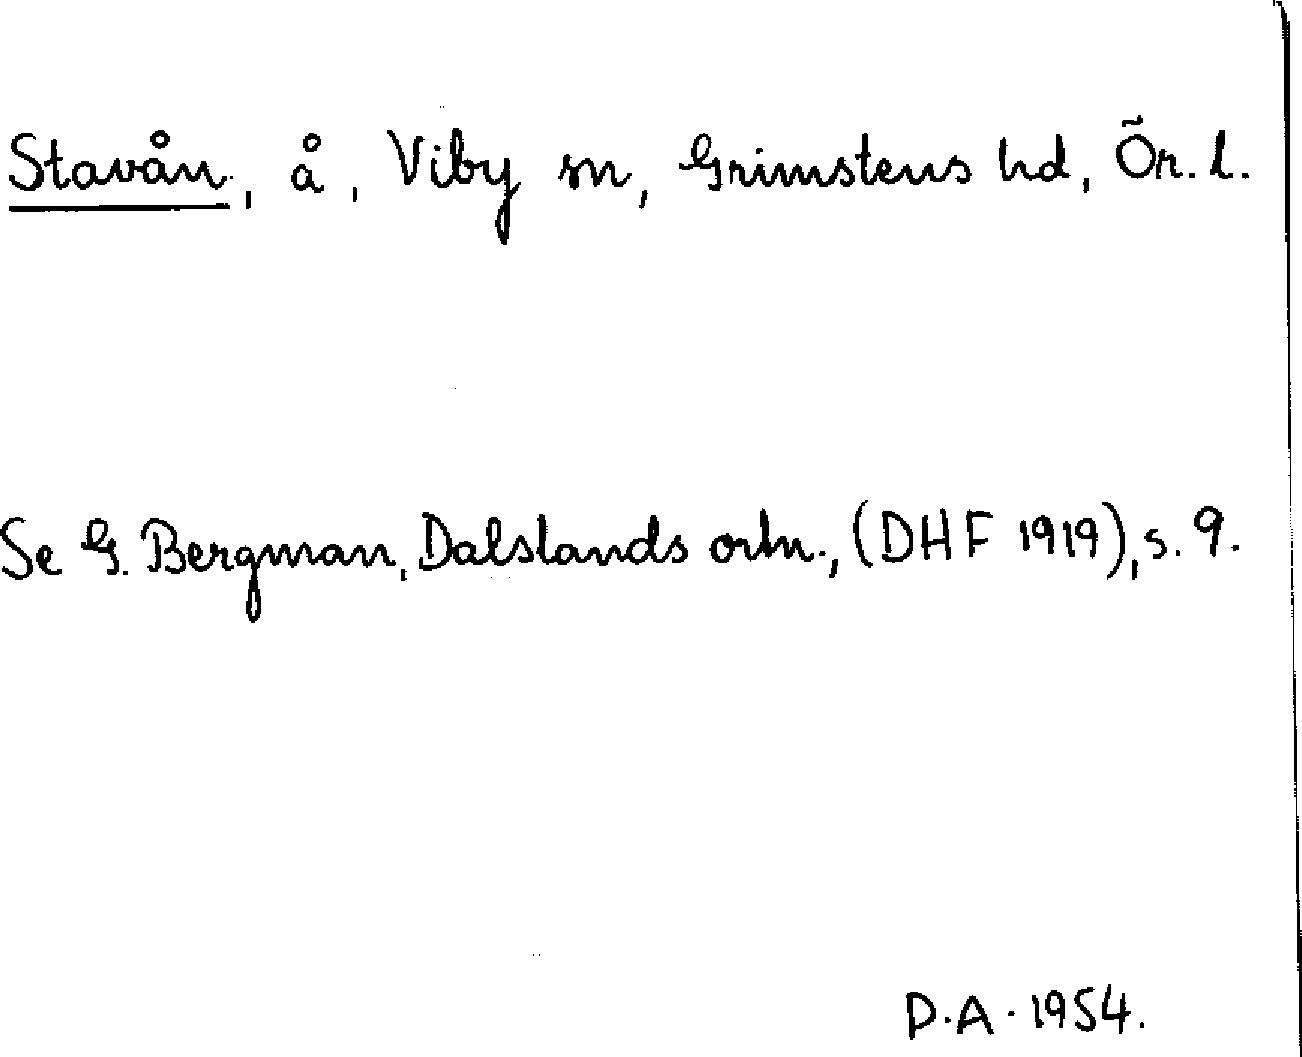 Stavån, å, Viby sn, Grimstens hd, Ör. l.
Se G. Bergman, Dalslands ortn., (DHF 1919), s. 9.
D.A. 1954.